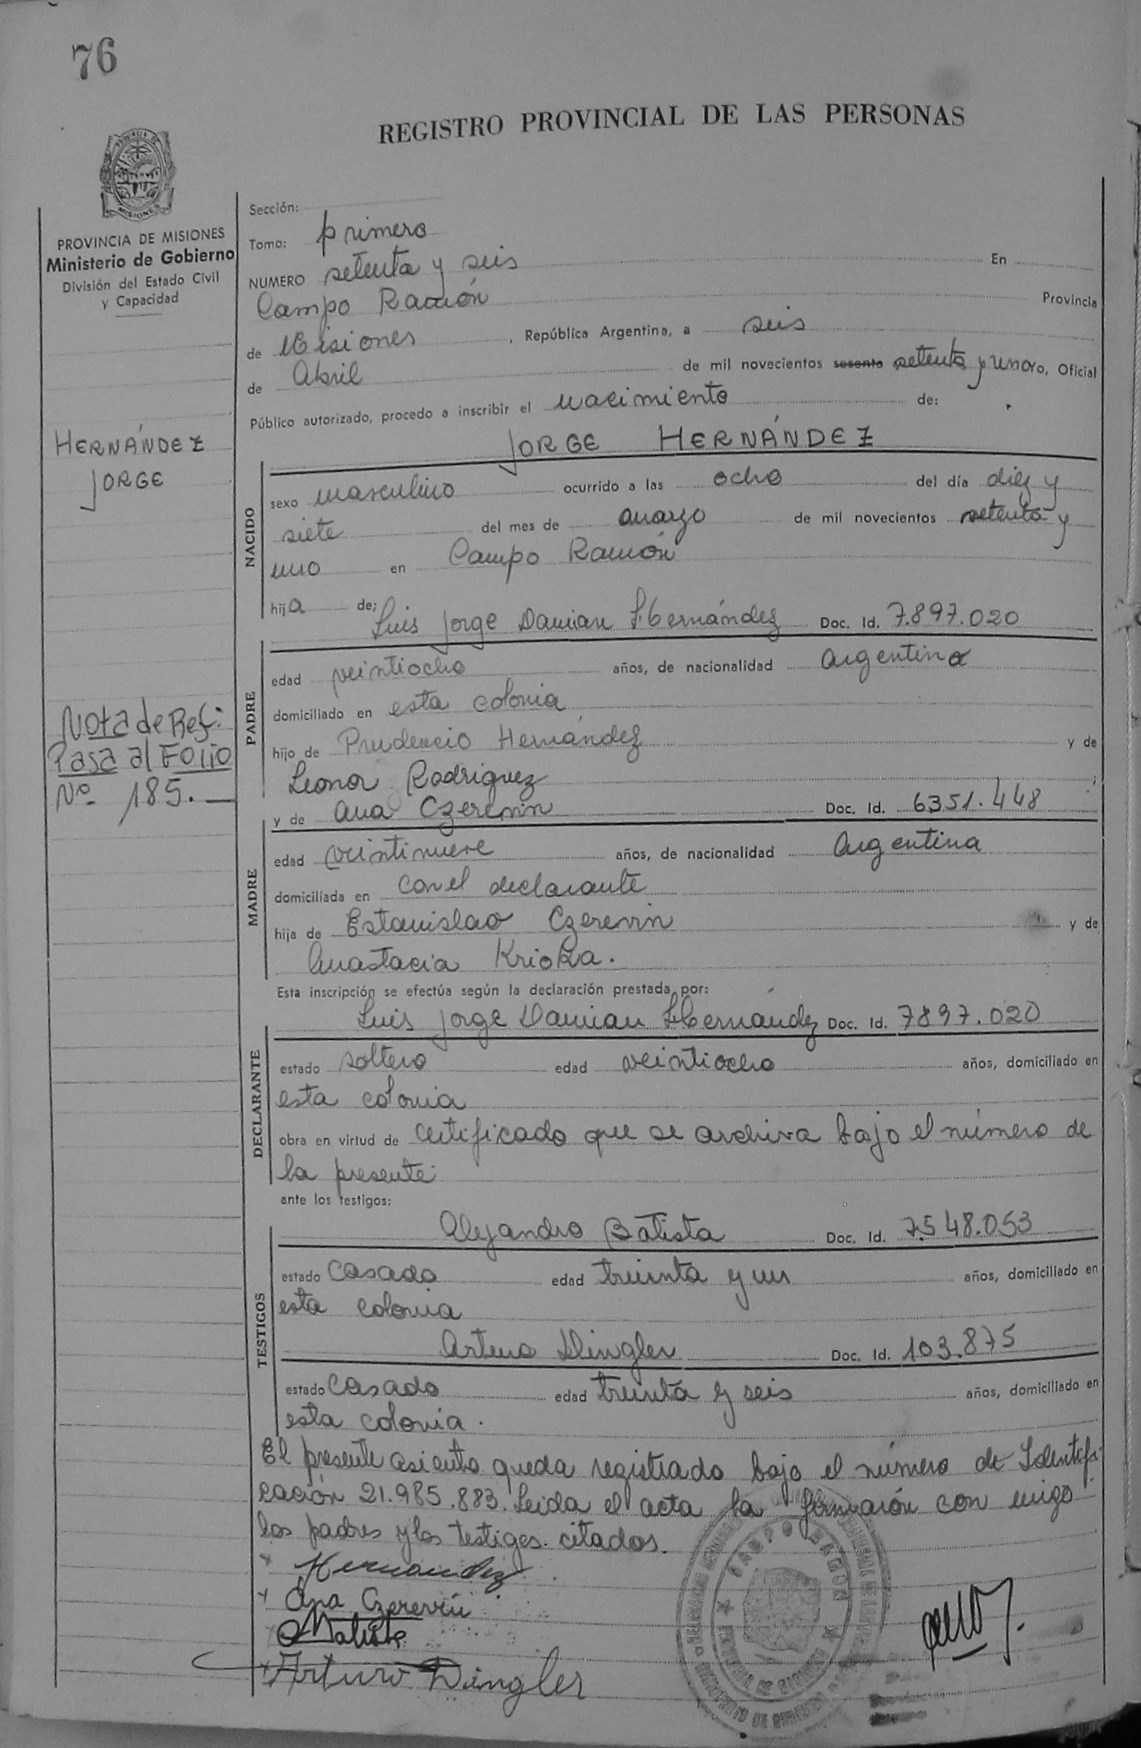 76
REGISTRO PROVINCIAL DE LAS PERSONAS
PROVINCIA DE MISIONES
Ministerio de Gobierno
División del Estado Civil
y Capacidad
HERNÁNDEZ
JORGE
Nota de Ref:
Pasa al Folio
Nº 185.
Sección:
Tomo: primero
NUMERO setenta y seis En
Campo Ramón Provincia
de Misiones, República Argentina, a seis
de Abril de mil novecientos sesenta setenta y uno, Oficial
Público autorizado, procedo a inscribir el nacimiento de:
JORGE HERNÁNDEZ
NACIDO
sexo masculino ocurrido a las ocho del día diez y
siete del mes de marzo de mil novecientos setenta y
uno en Campo Ramón
hija de: Luis Jorge Damian Hernández Doc. Id. 7.897.020
PADRE
edad veintiocho años, de nacionalidad argentina
domiciliado en esta colonia
hijo de Prudencio Hernández y de
Leonor Rodriguez;
y de Ana Czerevin Doc. Id. 6351.448
MADRE
edad veintinueve años, de nacionalidad Argentina
domiciliada en con el declarante
hija de Estanislao Czerevin y de
Anastacia Krioka.
Esta inscripción se efectúa según la declaración prestada por:
Luis Jorge Damian Hernández Doc. Id. 7897.020
DECLARANTE
estado soltero edad veintiocho años, domiciliado en
esta colonia
obra en virtud de certificado que se archiva bajo el número de
la presente
ante los testigos:
Alejandro Batista Doc. Id. 7.548.053
TESTIGOS
estado casado edad treinta y un años, domiciliado en
esta colonia
Arturo Dingler Doc. Id. 103.875
estado casado edad treinta y seis años, domiciliado en
esta colonia.
El presente asiento queda registrado bajo el número de Identifi-
cación 21.985.883. Leida el acta la firmarón con migo
los padres y los testiges citados.
Hernandez
Ana Czerevin
Arturo Dingler
CAMPO RAMON
PROVINCIA DE MISIONES